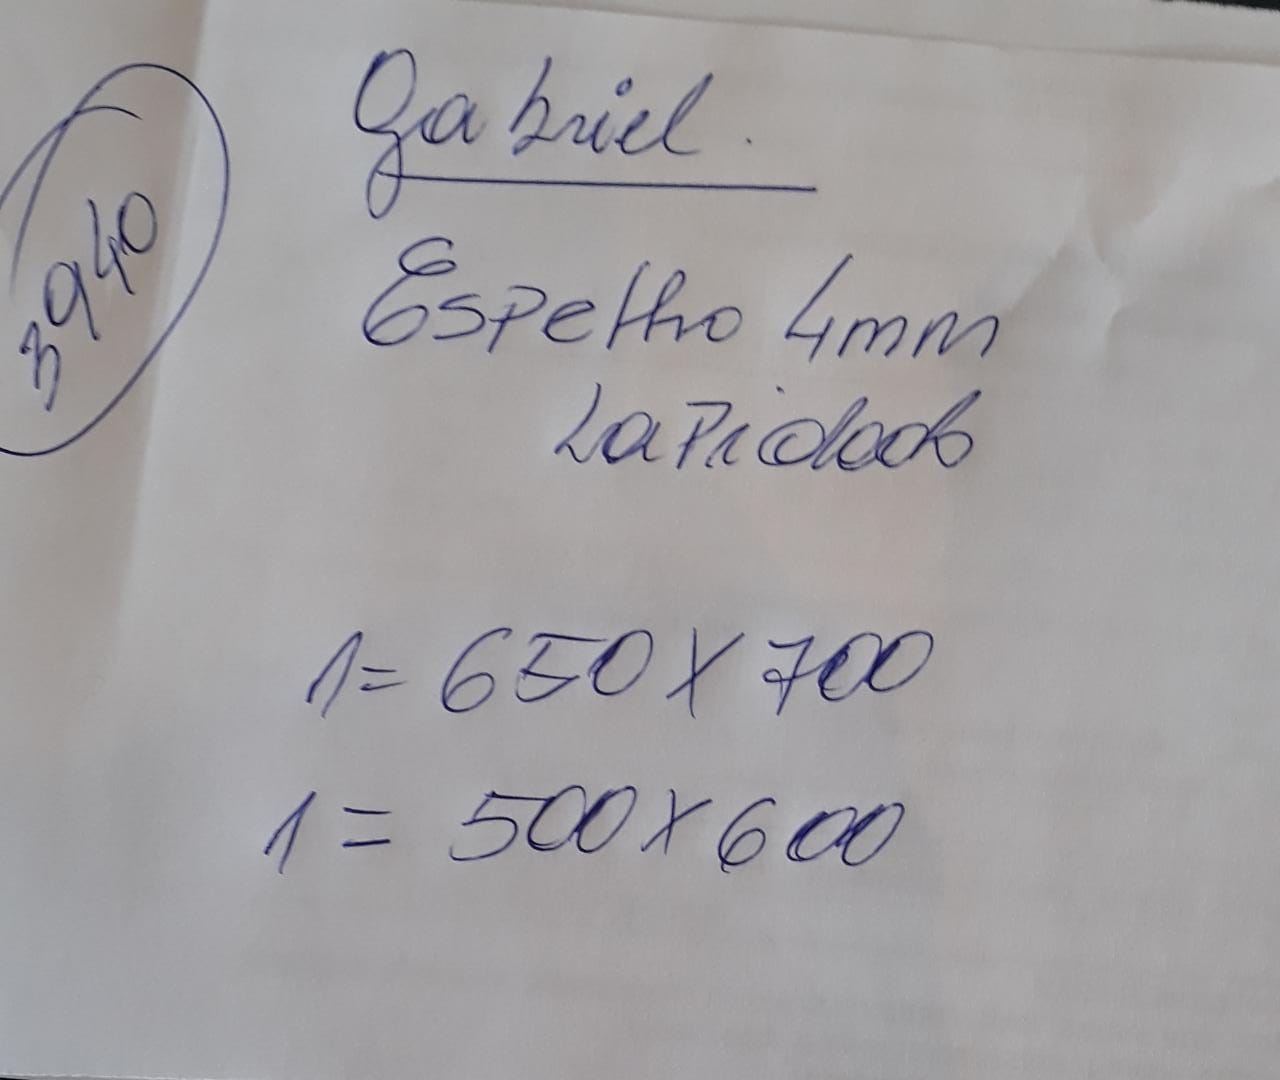 Gabriel.
3940
Espelho 4mm
Lapidado
1= 650 X 700
1 = 500 X 600